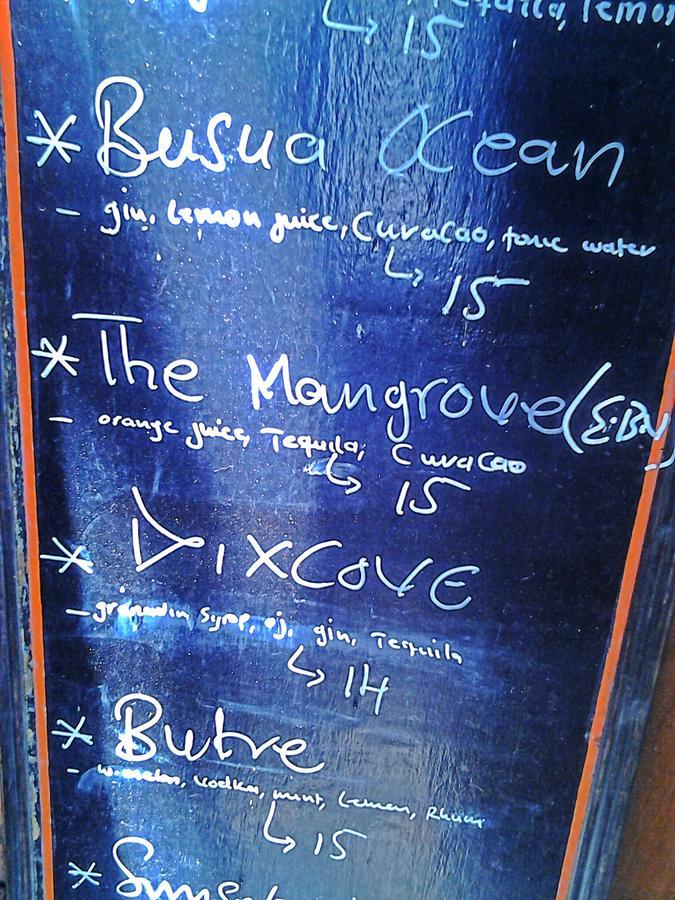 Tequila, lemon
↳ 15
* Busua Ocean
- gin, Lemon juice, Curacao, tonic water
↳ 15
* The Mangrove (EBN
- orange juice, Tequila, Curacao
↳ 15
* DIXCOVE
- grenadin Syrop, oj, gin, Tequila
↳ 14
* Butre
- w.melon, vodka, mint, Lemon, Rhum
↳ 15
* Sunset